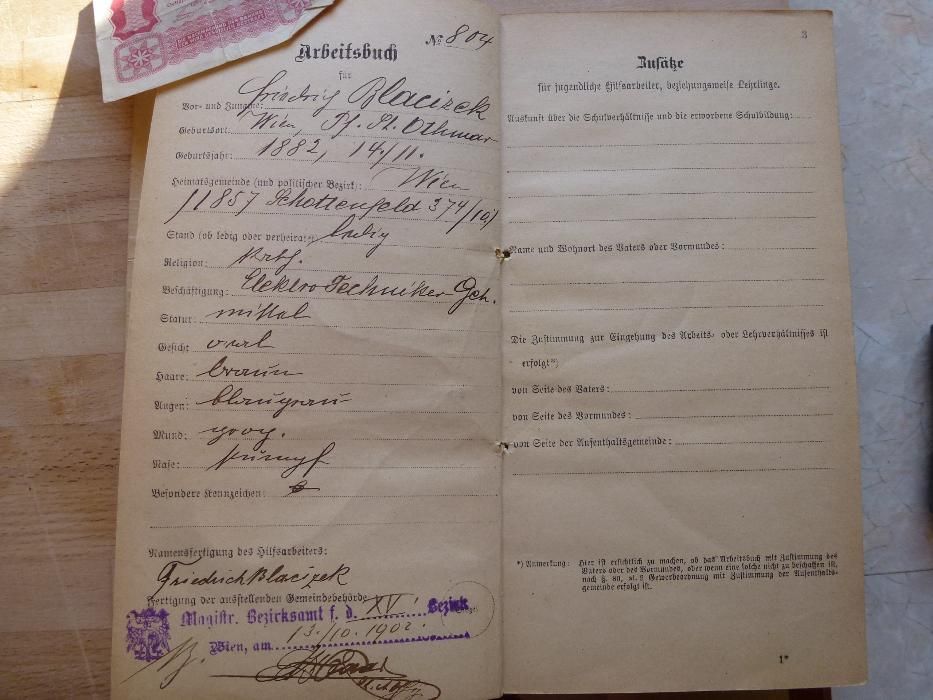 Arbeitsbuch № 804
für
Vor- und Zuname: Friedrich Blacizek
Geburtsort: Wien, Pf. St. Othmar
Geburtsjahr: 1882, 14./11.
Heimatsgemeinde (und politischer Bezirk): Wien
Schottenfeld 374/10
Stand (ob ledig oder verheiratet) ledig
Religion: kath.
Beschäftigung: Elektro Techniker Geh.
Statur: mittel
Gesicht: oval
Haare: braun
Augen: blaugrau
Mund:
Nase: stumpf
Besondere Kennzeichen:
Namensfertigung des Hilfsarbeiters:
Friedrich Blacizek
Fertigung der ausstellenden Gemeindebehörde
Magistr. Bezirksamt f. d. XV. Bezirk
Wien, am 13./10. 1902.
3
Zusätze
für jugendliche Hilfsarbeiter, beziehungsweise Lehrlinge.
Auskunft über die Schulverhältnisse und die erworbene Schulbildung:
Name und Wohnort des Vaters oder Vormundes:
Die Zustimmung zur Eingehung des Arbeits- oder Lehrverhältnisses ist
erfolgt*)
von Seite des Vaters:
von Seite des Vormundes:
von Seite der Aufenthaltsgemeinde:
*) Anmerkung: Hier ist ersichtlich zu machen, ob das Arbeitsbuch mit Zustimmung des
Vaters oder des Vormundes, oder wenn eine solche nicht zu beschaffen ist,
nach §. 80, al. 2 Gewerbeordnung mit Zustimmung der Aufenthalts-
gemeinde erfolgt ist.
1*